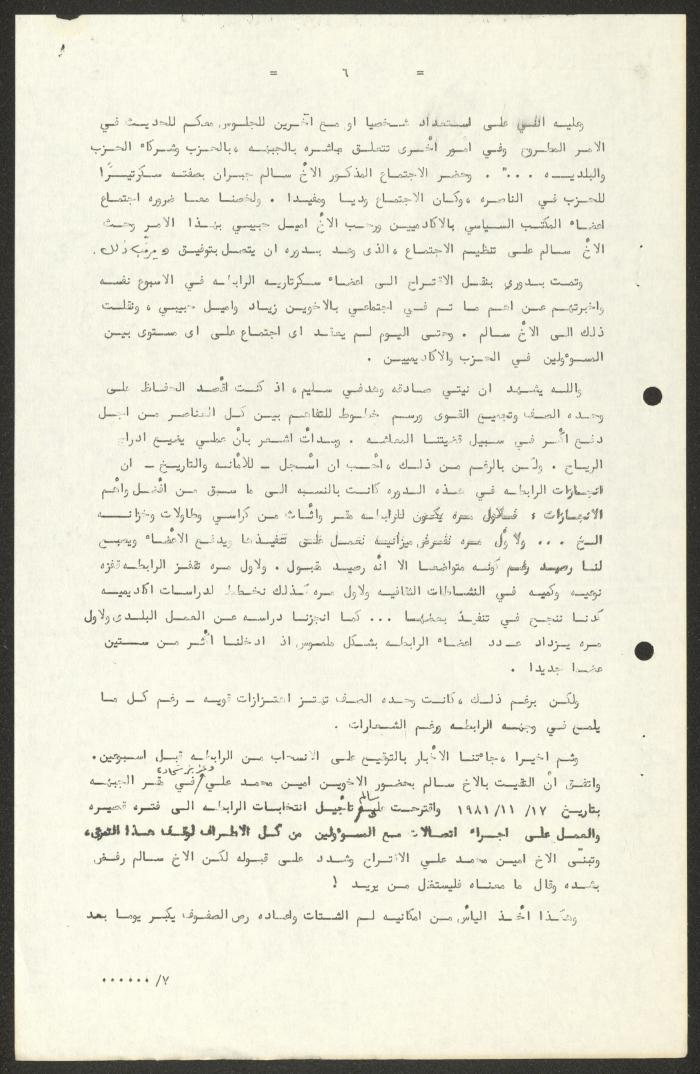 = ٦ =
وعليه انني على استعداد شخصيا او مع آخرين للجلوس معكم للحديث في
الامر المطروح وفي امور أخرى تتعلق مباشره بالجبهه ، بالحزب وشركاء الحزب
والبلديــه ٠٠٠" . وحضر الاجتماع المذكور الاخ سالم جبران بصفته سكرتيرًا
للحزب في الناصره ، وكان الاجتماع وديا ومفيدا . ولخصنا معا ضروره اجتماع
اعضاء المكتب السياسي بالاكادميين ورحب الاخ اميل حبيبي بهذا الامر وحث
الاخ سالم على تنظيم الاجتماع ، الذى وعد بدوره ان يتصل بتوفيق و يرتّب ذلك .
وتمت بدوري بنقل الاقتراح الى اعضاء سكرتاريه الرابطه في الاسبوع نفسه
واخبرتهم عن اهم ما تم في اجتماعي بالاخوين زياد واميل حبيبي ، ونقلت
ذلك الى الاخ سالم . وحتى اليوم لم يعقد اى اجتماع على اى مستوى بين
المسؤولين في الحزب والاكاديميين .
والله يشهد ان نيتي صادقه وهدفي سليم ، اذ كنت اقصد الحفاظ على
وحده الصف وتجميع القوى ورسم خطوط للتفاهم بين كل العناصر من اجل
دفع اكثر في سبيل قضيتنا المعاشه . وبدأت اشعر بان عملي يضيع ادراج
الرياح . ولكن بالرغم من ذلك ، احب ان اسجل ـ للامانه والتاريخ ـ ان
انجازات الرابطه في هذه الدوره كانت بالنسبه الى ما سبق من افضل واهم
الانجازات ؛ فلاول مره يكون للرابطه مقر واثاث من كراسي وطاولات وخزانه
الخ ٠٠٠ ولاول مره نفرض ميزانيه نعمل على تنفيذها ويدفع الاعضاء ويصبح
لنا رصيد رغم كونه متواضعا الا انه رصيد مقبول . ولاول مره تقفز الرابطه قفزه
نوعيه وكميه في النشاطات الثقافيه ولاول مره كذلك نخطط لدراسات اكاديميه
كدنا ننجح في تنفيذ بعضها ٠٠٠ كما انجزنا دراسه عن العمل البلدى ولاول
مره يزداد عدد اعضاء الرابطه بشكل ملموس اذ ادخلنا اكثر من ستين
عضوا جديدا .
ولكن برغم ذلك ، كانت وحده الصف تهتز اهتزازات قويه ـ رغم كل ما
يلمع في وجهه الرابطه ورغم الشعارات .
وثم اخيرا ، جائتنا الاخبار بالتوقيع على الانسحاب من الرابطه قبل اسبوعين .
واتفق ان التقيت بالاخ سالم بحضور الاخوين امين محمد علي في مقر الجبهه
بتاريخ ١٧/ ١١/ ١٩٨١ واقترحت على سالم تأجيل انتخابات الرابطه الى فتره قصيره
والعمل على اجراء اتصالات مع المسؤولين من كل الاطراف لوقف هذا التمزق ،
وتبنّى الاخ امين محمد علي الاقتراح وشدد على قبوله لكن الاخ سالم رفض
بشده وقال ما معناه فليستقل من يريد !
وهكذا اخذ اليأس من امكانيه لم الشتات واعاده رص الصفوف يكبر يوما بعد
٧/ ٠٠٠٠٠٠